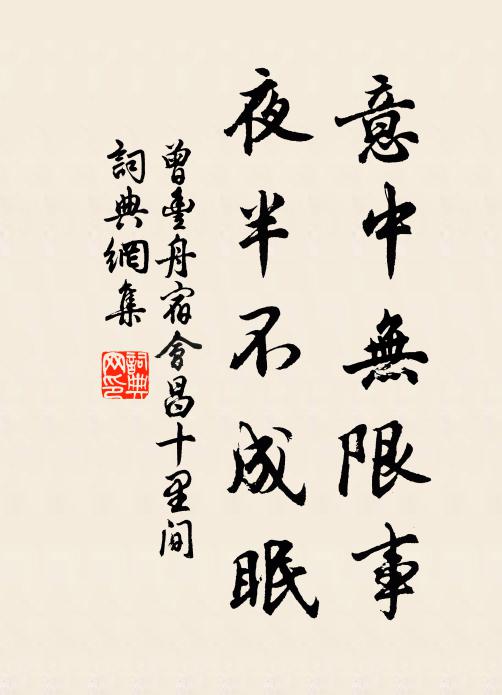 意中無限事
夜半不成眠
曾豐舟宿會昌十里間
詞典網集
詞典
网印